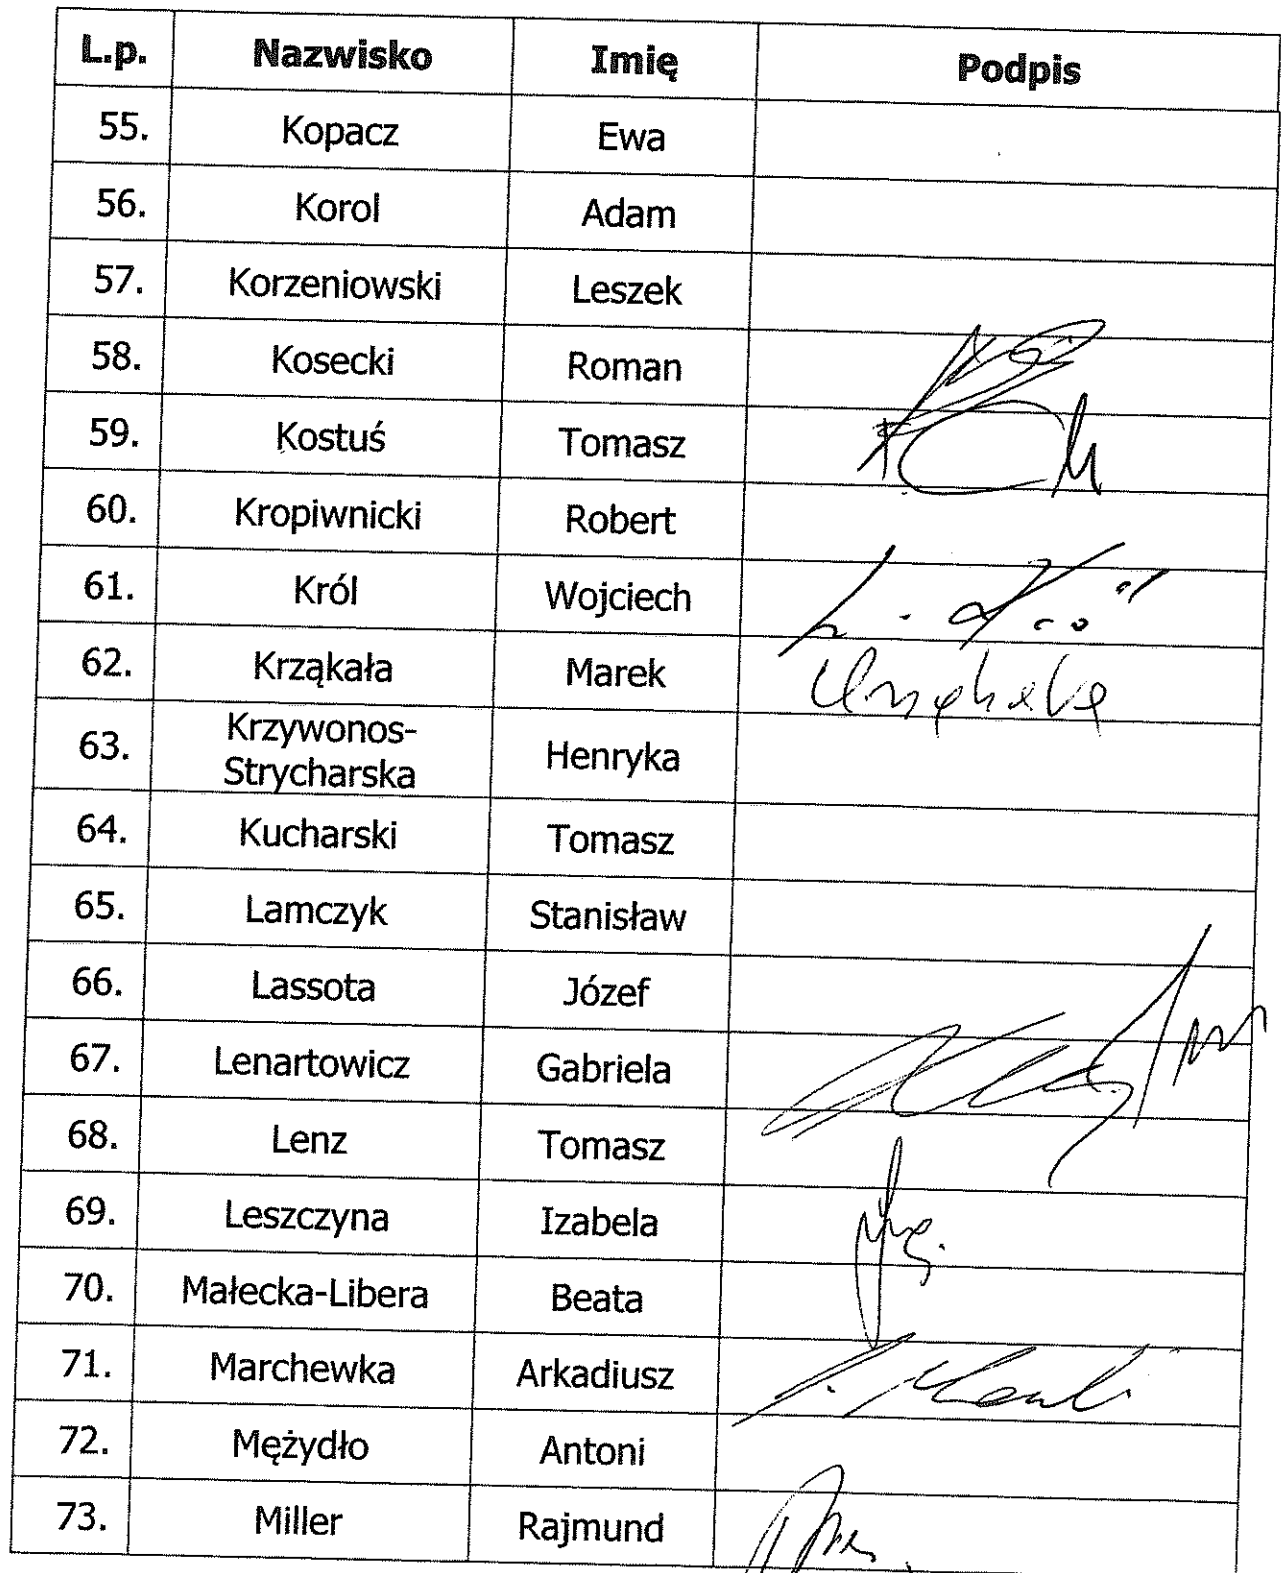 L.p. Nazwisko Imię Podpis
55. Kopacz Ewa
56. Korol Adam
57. Korzeniowski Leszek
58. Kosecki Roman
59. Kostuś Tomasz
60. Kropiwnicki Robert
61. Król Wojciech
62. Krząkała Marek
63. Krzywonos-
Strycharska Henryka
64. Kucharski Tomasz
65. Lamczyk Stanisław
66. Lassota Józef
67. Lenartowicz Gabriela
68. Lenz Tomasz
69. Leszczyna Izabela
70. Małecka-Libera Beata
71. Marchewka Arkadiusz
72. Mężydło Antoni
73. Miller Rajmund